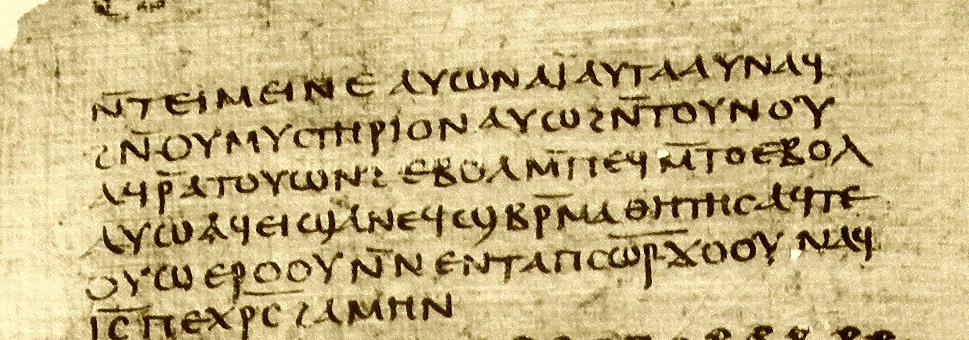 ⲛ̄ⲧⲉⲓⲙⲉⲓⲛⲉ ⲁⲩⲱ ⲛⲁⲓ̈ ⲁⲩⲧⲁⲁⲩ ⲛⲁϥ
ϩⲛ̄ ⲟⲩⲙⲩⲥⲧⲏⲣⲓⲟⲛ ⲁⲩⲱ ϩⲛ̄ ⲧⲟⲩⲛⲟⲩ
ⲁϥⲣ̄ ⲁⲧⲟⲩⲱⲛϩ ⲉⲃⲟⲗ ⲙ̄ⲡⲉϥⲙ̄ⲧⲟ ⲉⲃⲟⲗ
ⲁⲩⲱ ⲁϥⲉⲓ ϣⲁ ⲛⲉϥϣⲃⲣ̄ⲙⲁⲑⲏⲧⲏⲥ ⲁϥⲧⲉ
ⲟⲩⲱ ⲉⲣⲟⲟⲩ ⲛ̄ⲛⲉⲛⲧⲁ ⲡⲥⲱ̅ⲣ̅ ϫⲟⲟⲩ ⲛⲁϥ
ⲓ̅ⲥ̅ ⲡⲉⲭ̅ⲣ̅ⲥ̅ ϩⲁⲙⲏⲛ